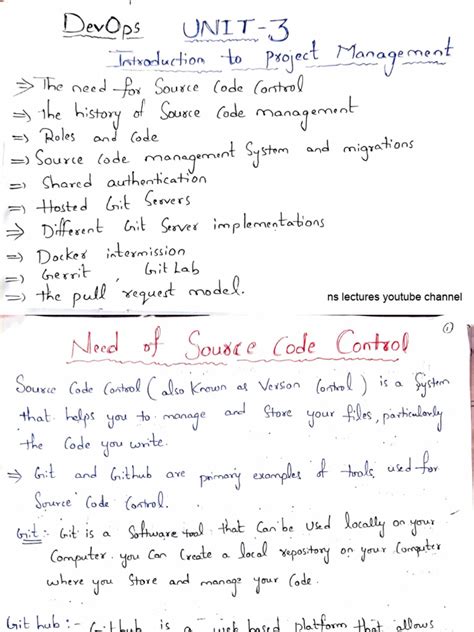 DevOps UNIT-3
Introduction to Project Management
⇒ The need for Source Code Control
⇒ the history of Source Code management
⇒ Roles and Code
⇒ Source Code management System and migrations
⇒ Shared authentication
⇒ Hosted Git Servers
⇒ Different Git Server implementations
⇒ Docker intermission
⇒ Gerrit GitLab
⇒ the pull request model.
ns lectures youtube channel
①
Need of Source Code Control
Source Code Control (also Known as Verson Control) is a System
that helps you to manage and Store your files, particularly
the Code you write.
⇒ Git and Github are primary examples of tools used for
Source Code Control.
Git :- Git is a Software tool that Can be Used locally on your
Computer. you Can Create a local repository on your Computer
where you Store and manage your Code.
Git hub :- Github is a web based platform that allows